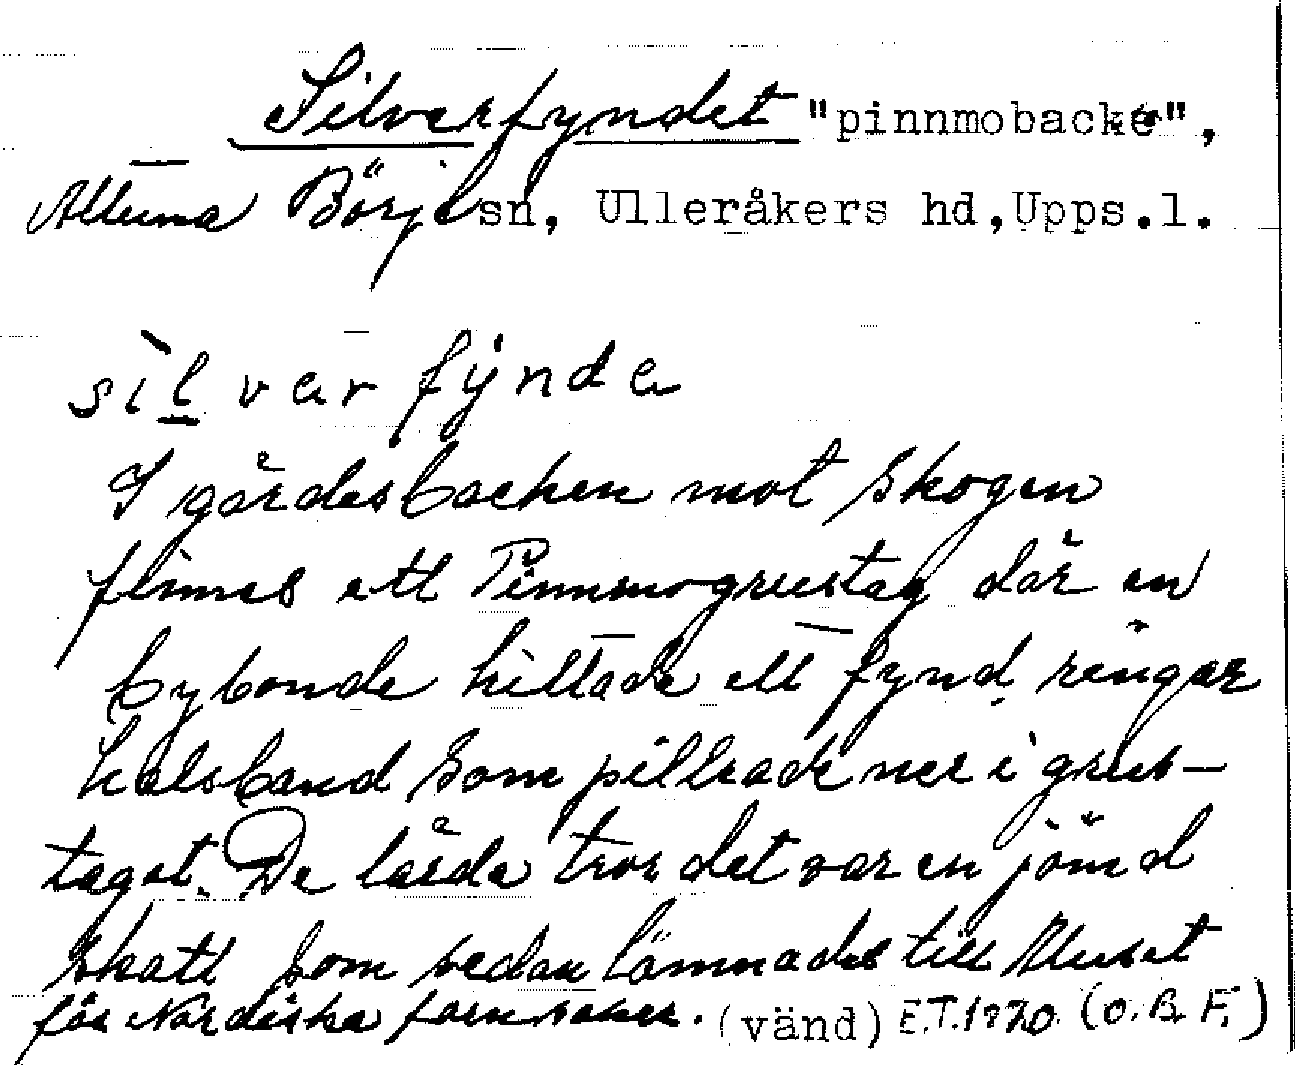 Silverfyndet "pinnmobacke",
Altuna Börje sn, Ulleråkers hd, Upps.l.
sìl var fýnda
I gärdesbacken mot skogen
finnes ett Pinnmogrustag där en
bybonde hittade ett fynd ringar
halsband som pillrade ner i grus-
taget. De lärda tror det var en jömd
skatt som sedan lämnades till Muset
för Nordiska fornsaker. (vänd) E.T.1970. (O.B.F.)